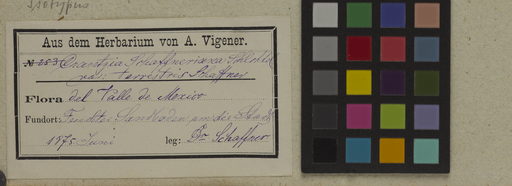 Isotypus
Aus dem Herbarium von A. Vigener.
№ 253 Schaffneriana Schlchtd
var. terrestris Schaffner
Flora del Valle de Mexico
Fundort: an der
1875 Juni leg: Dr Schaffner